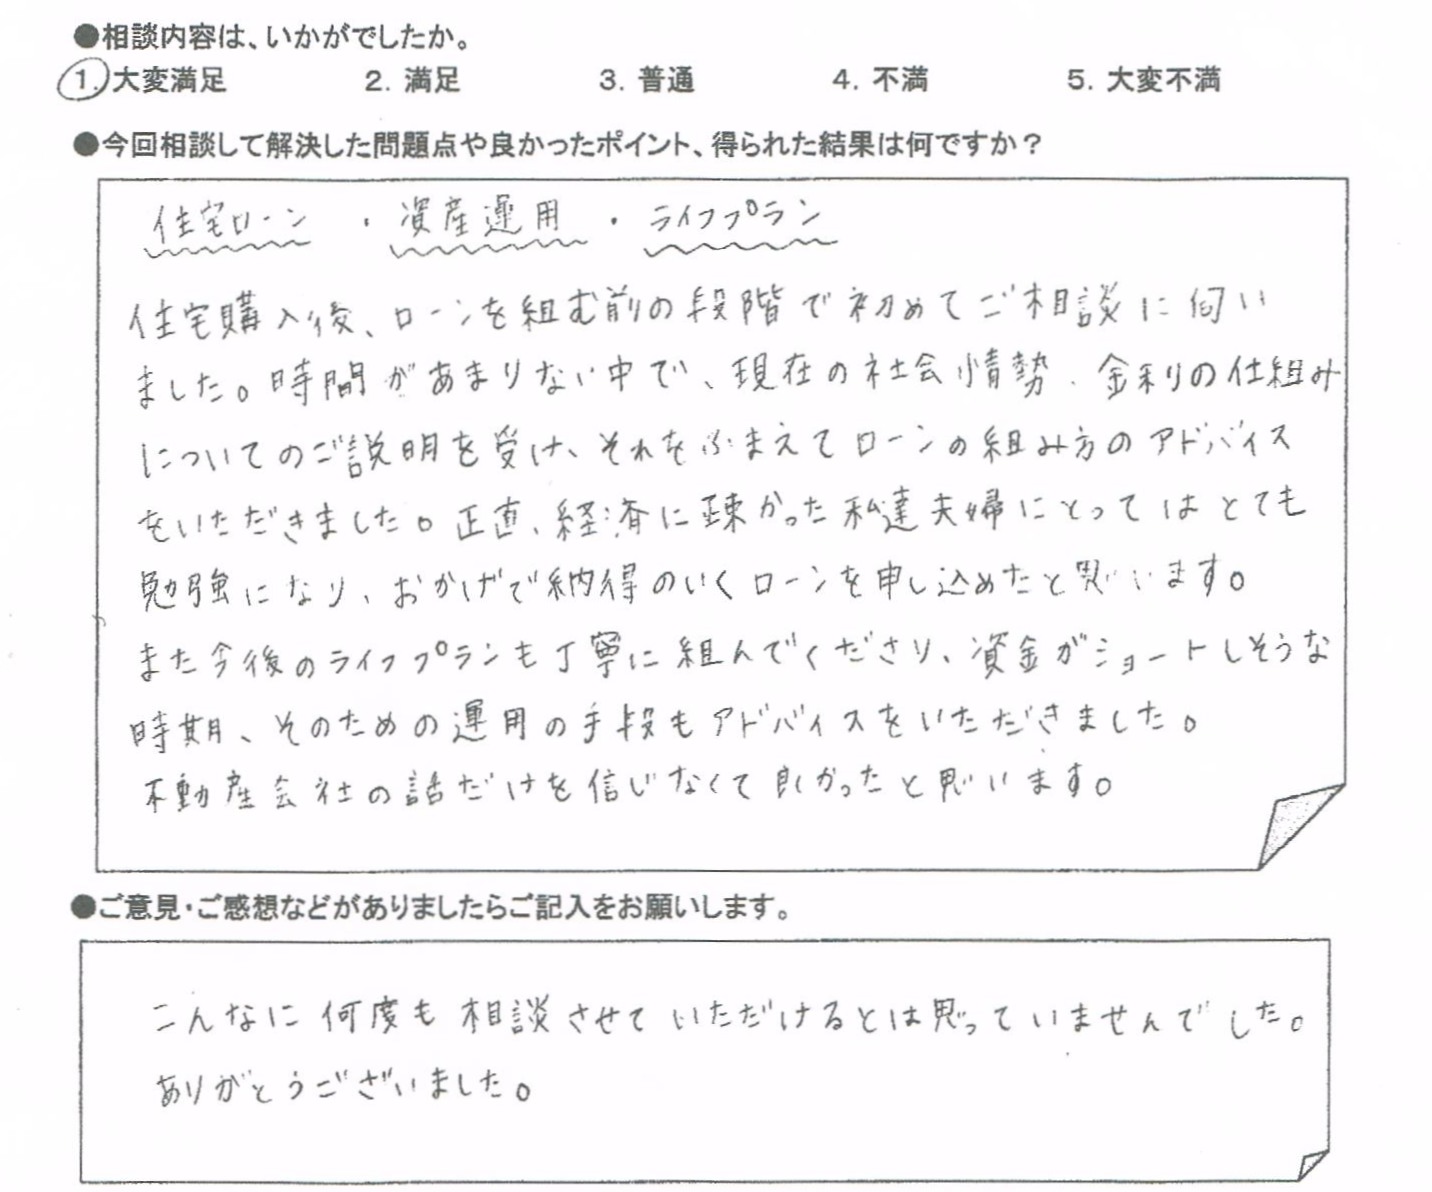 ●相談内容は、いかがでしたか。
1. 大変満足 2. 満足 3. 普通 4. 不満 5. 大変不満
●今回相談して解決した問題点や良かったポイント、得られた結果は何ですか？
住宅ローン ・ 資産運用 ・ ライフプラン
住宅購入後、ローンを組む前の段階で初めてご相談に伺い
ました。時間があまりない中で、現在の社会情勢、金利の仕組み
についてのご説明を受け、それをふまえてローンの組み方のアドバイス
をいただきました。正直、経済に疎かった私達夫婦にとってはとても
勉強になり、おかげで納得のいくローンを申し込めたと思います。
また今後のライフプランも丁寧に組んでくださり、資金がショートしそうな
時期、そのための運用の手段もアドバイスをいただきました。
不動産会社の話だけを信じなくて良かったと思います。
●ご意見・ご感想などがありましたらご記入をお願いします。
こんなに何度も相談させていただけるとは思っていませんでした。
ありがとうございました。